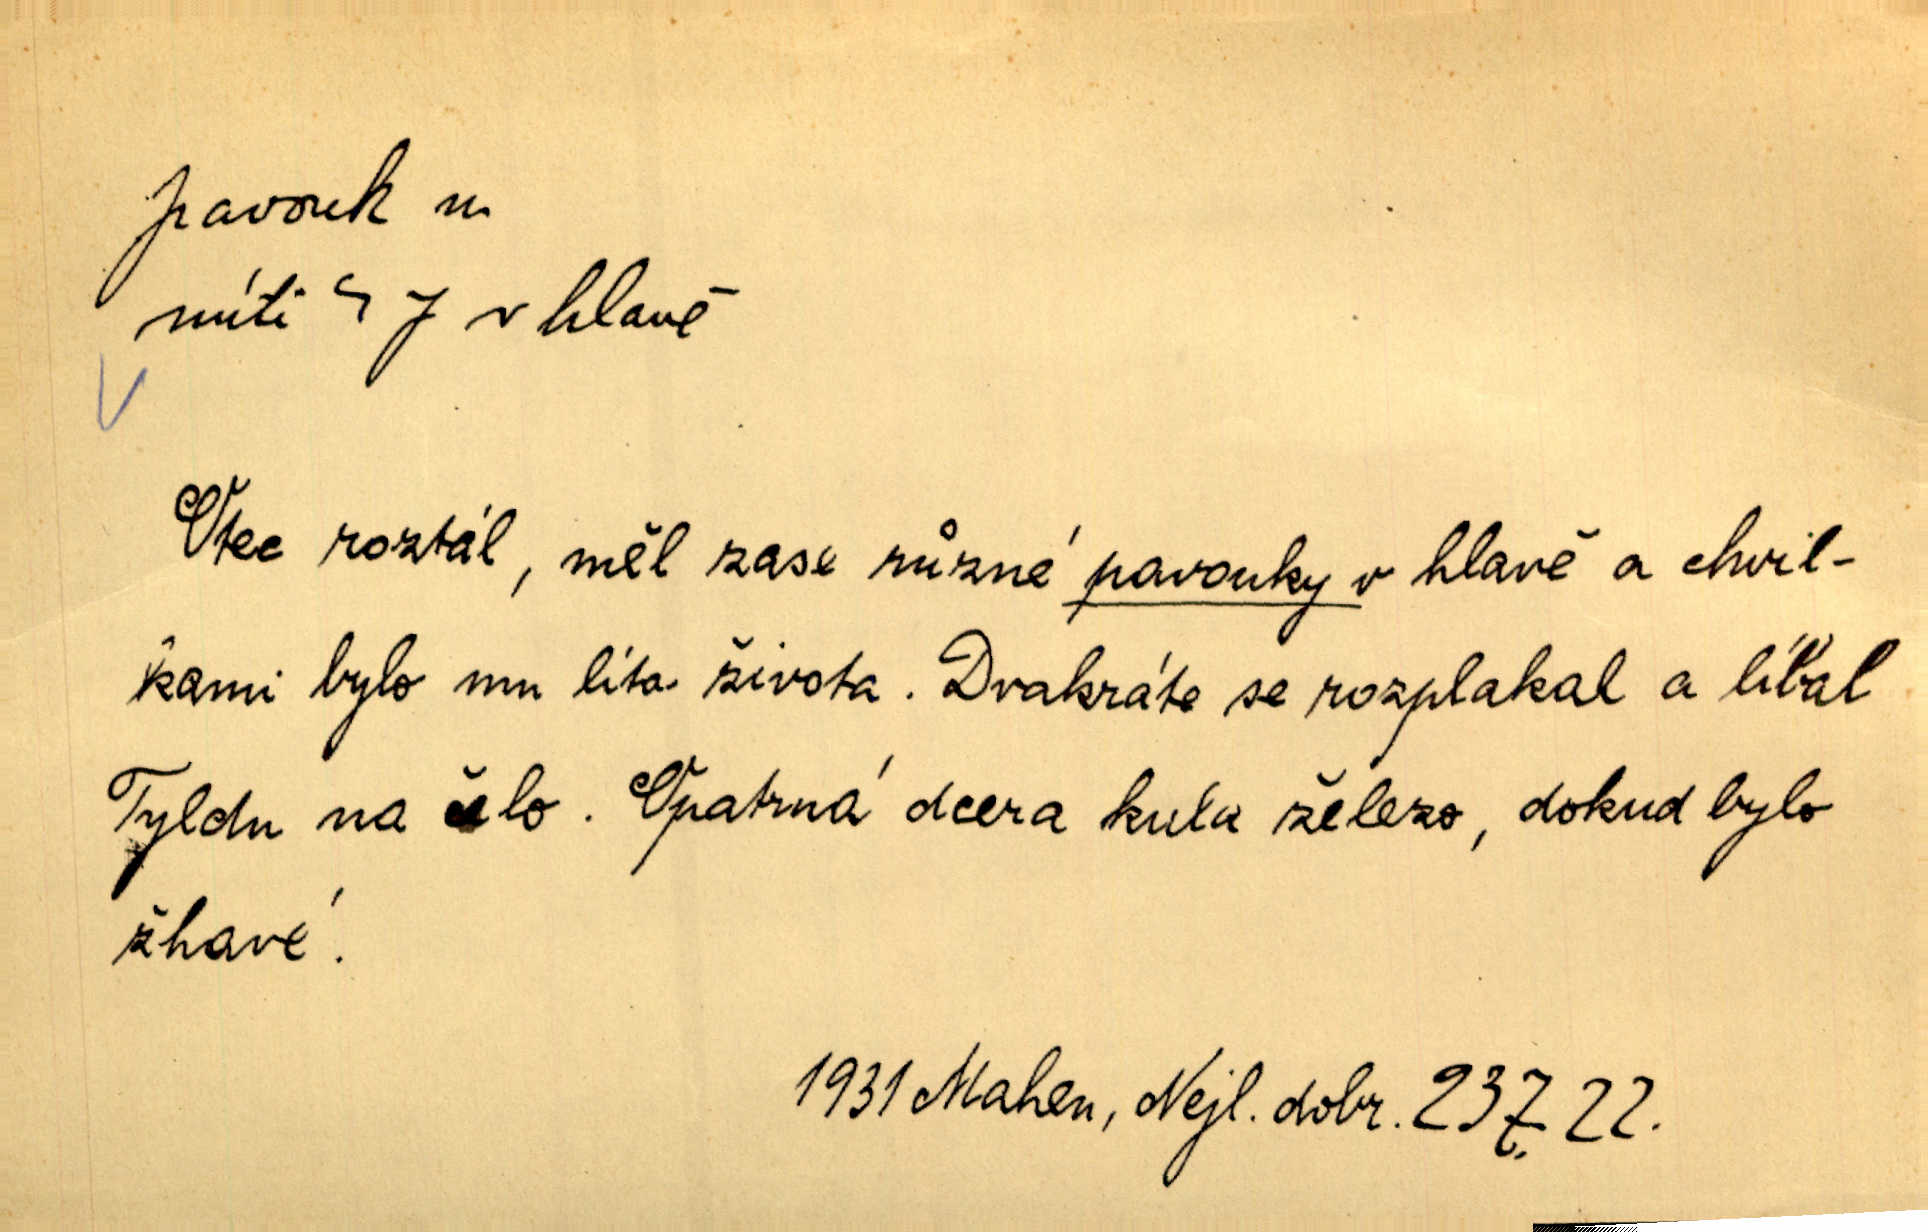 pavouk m.
míti ~ y v hlavě
Otec roztál, měl zase různé pavouky v hlavě a chvil-
kami bylo mu líto života. Dvakráte se rozplakal a líbal
Tyldu na čelo. Opatrná dcera kula železo, dokud bylo
žhavé.
1931 Mahen, Nejl. dobr. 237, 22.